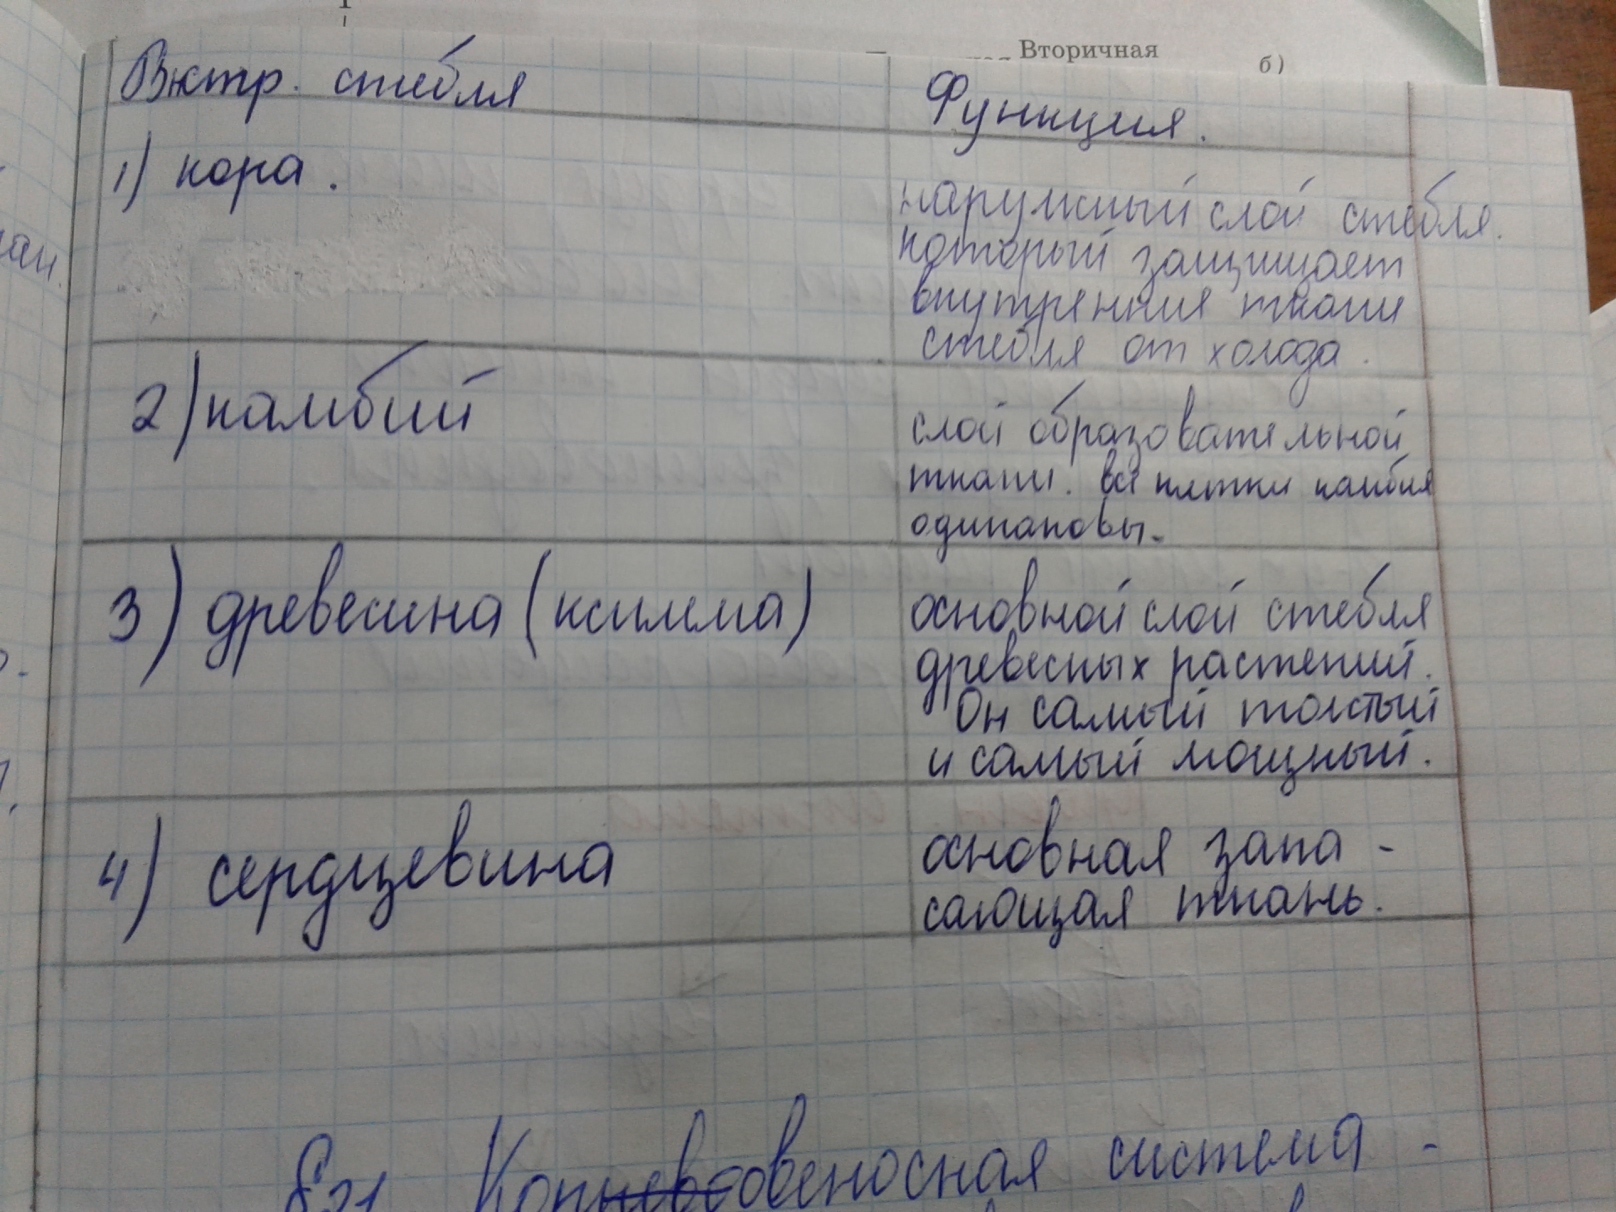 Вторичная
б)
Внтр. стебля
Функция.
1) кора.
наружный слой стебля.
который защищает
внутренние ткани
стебля от холода.
2) камбий
слой образовательной
ткани. все клетки камбия
одинаковы.
3) древесина (ксилма)
основной слой стебля
древесных растений.
Он самый толстый
и самый мощный.
4) сердцевина
основная запа-
сающая ткань.
§21 система -